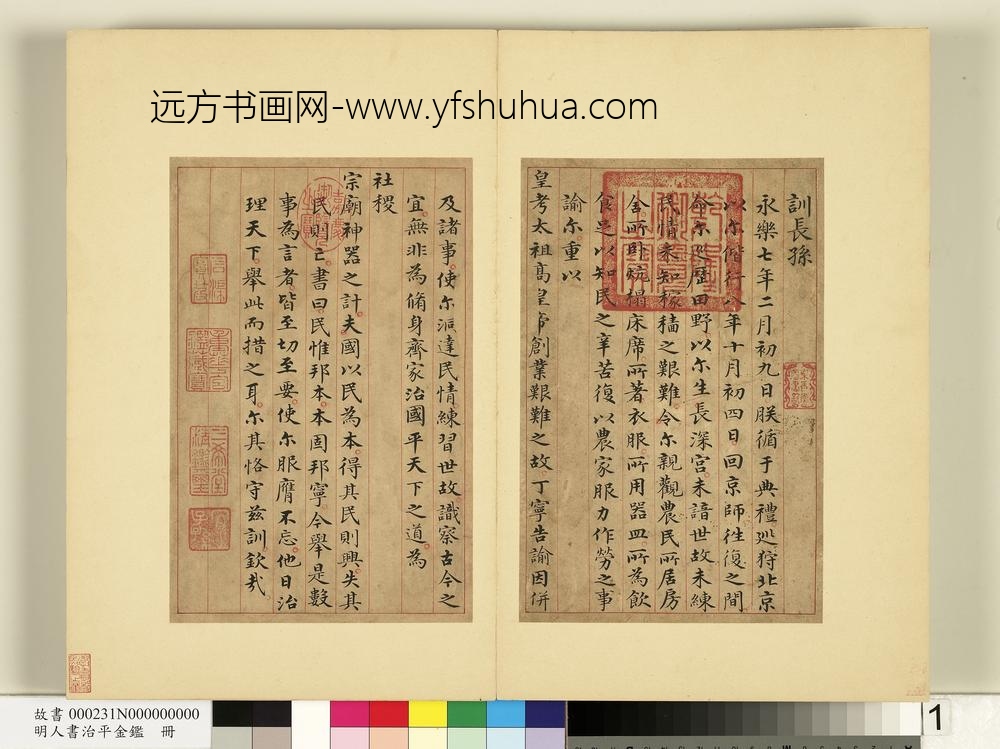 远方书画网-www.yfshuhua.com
訓長孫
永樂七年二月初九日朕循于典禮廵狩北京
以尔偕行八年十月初四日回京師徃復之間
命尔廵歷田野以尔生長深宫未諳世故未練
民情未知稼穡之艱難令尔親觀農民所居房
舍所卧炕榻床席所著衣服所用器皿所為飲
食足以知民之辛苦復以農家服力作勞之事
諭尔重以
皇考太祖高皇帝創業艱難之故丁寧告諭因併
及諸事使尔洞達民情練習世故識察古今之
宜無非為脩身齊家治國平天下之道為
社稷
宗廟神器之計夫國以民為本得其民則興失其
民則亡書曰民惟邦本本固邦寧今舉是數
事為言者皆至切至要使尔服膺不忘他日治
理天下舉此而措之耳尔其恪守兹訓欽㢤
故書 000231N000000000
明人書治平金鑑 冊
1